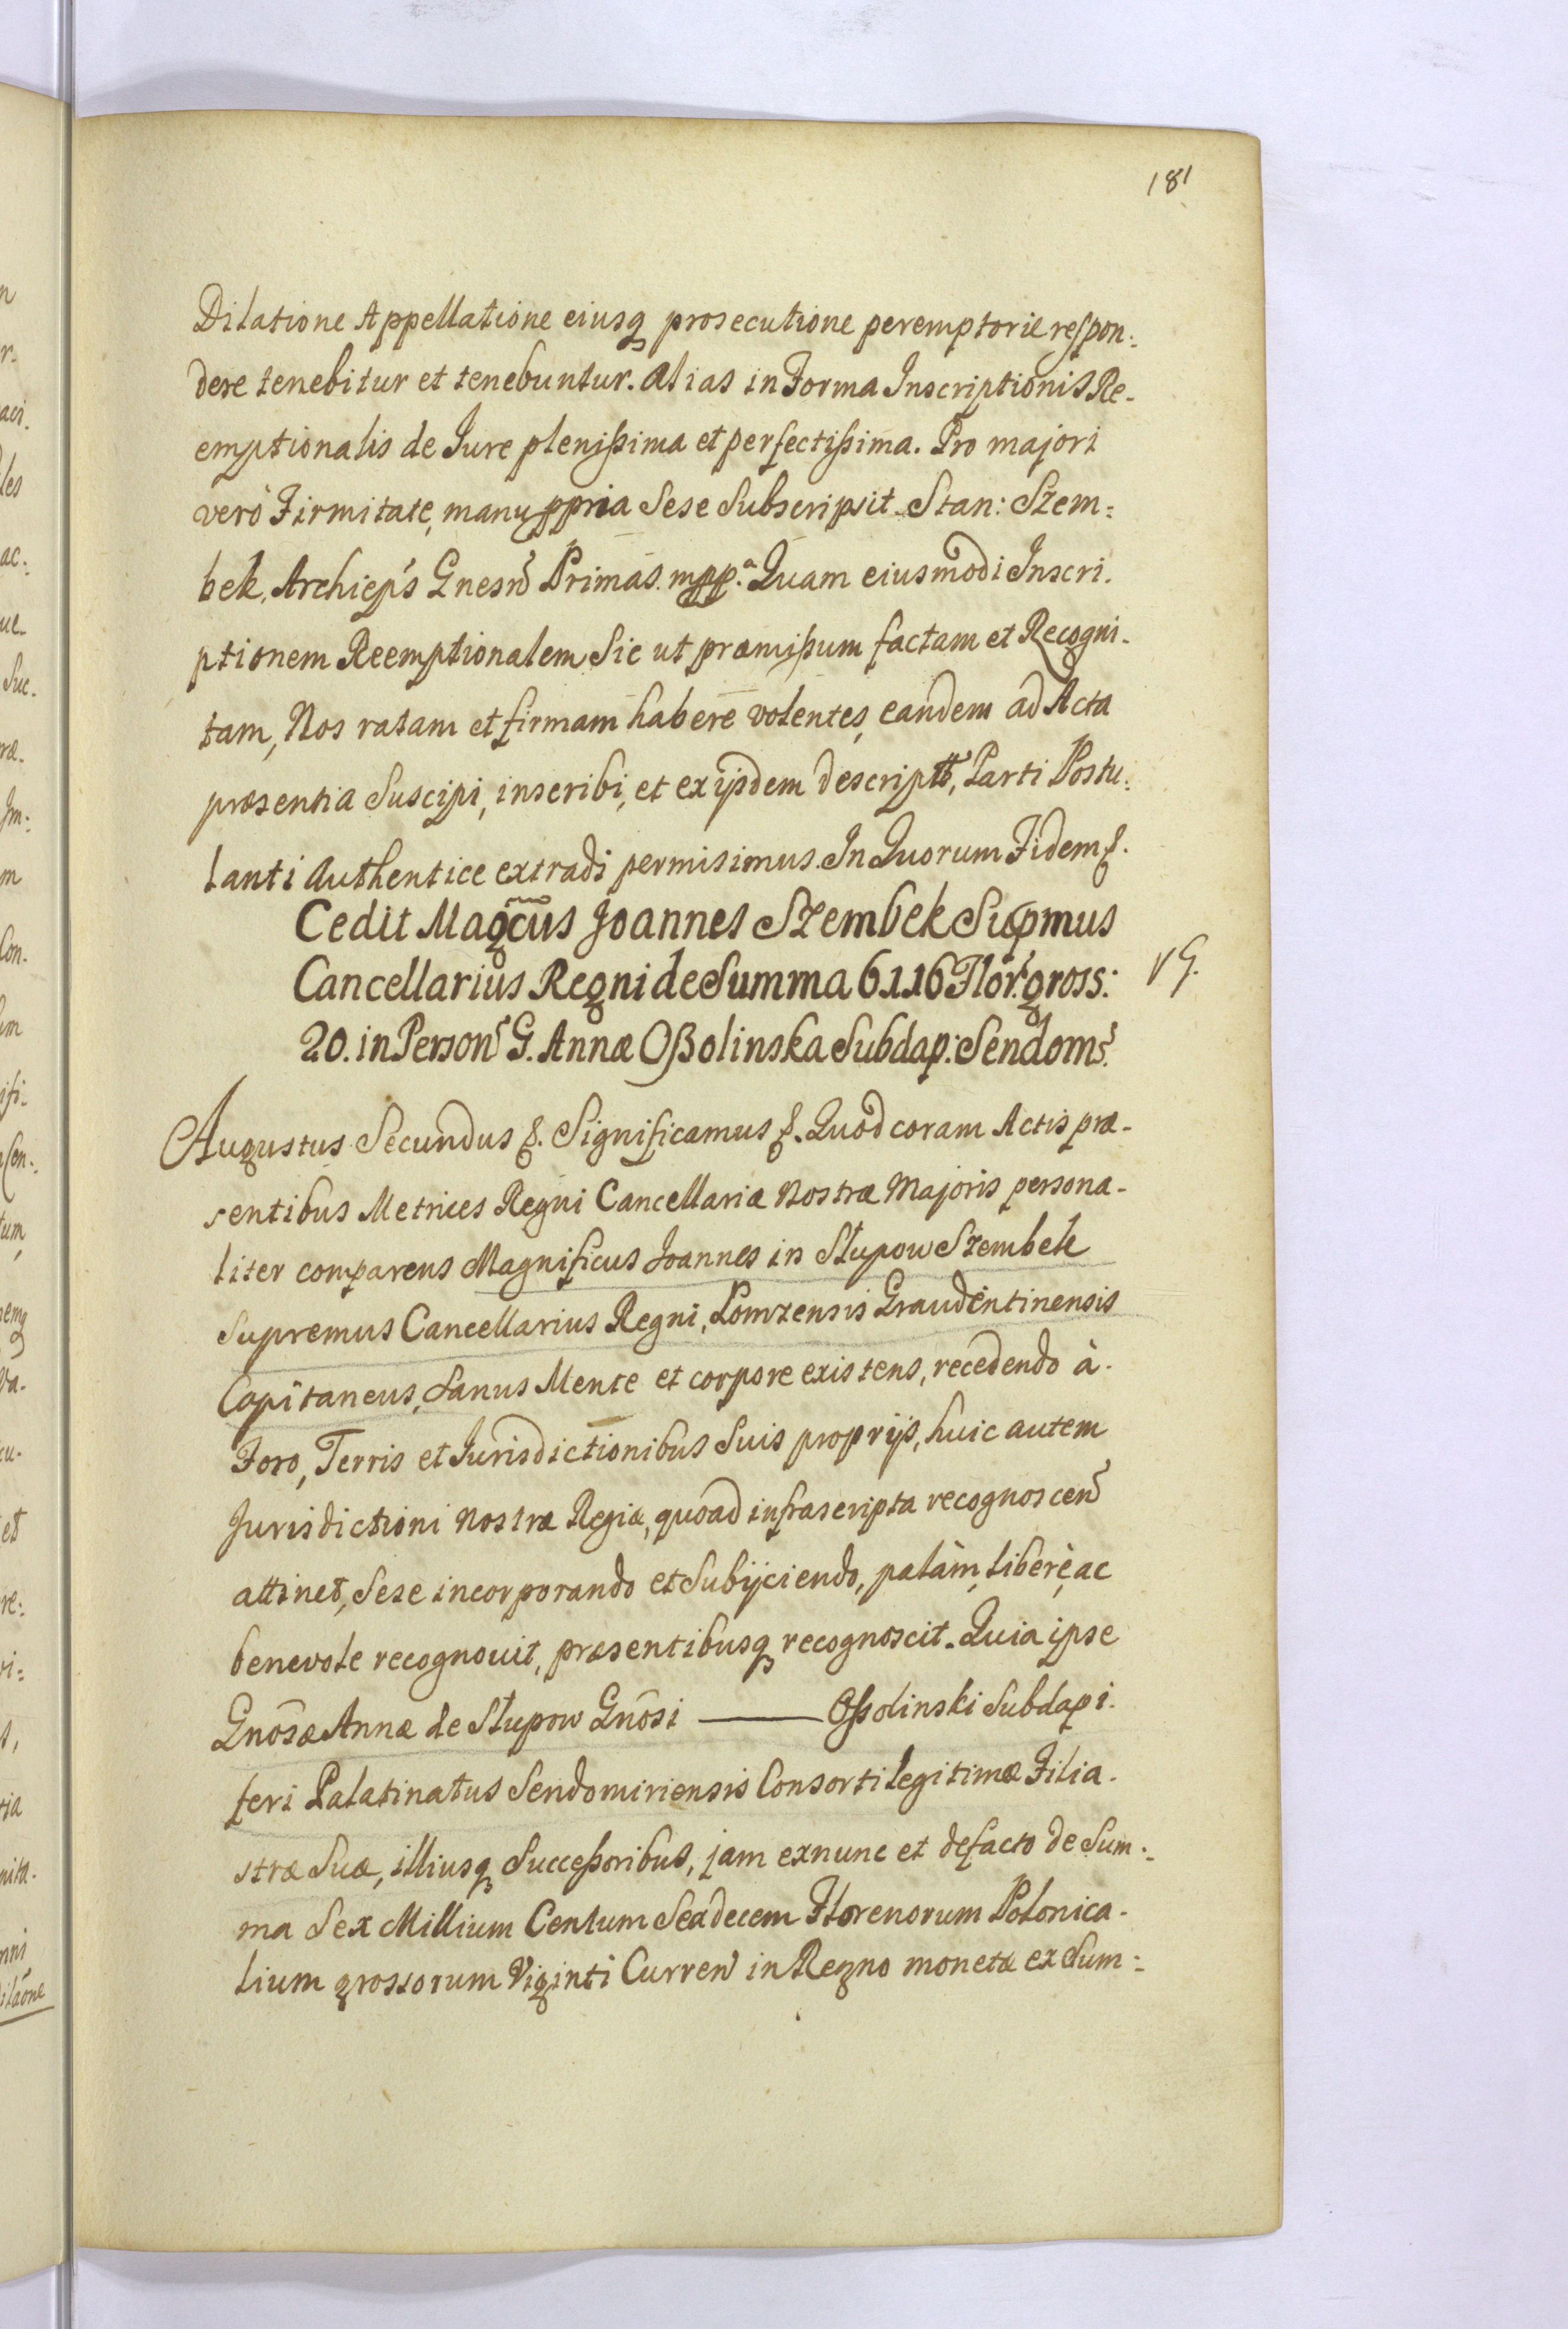 181
Dilatione Appellatione eiusq prosecutione peremptorie respon:
dere tenebitur et tenebuntur. Alias in Forma Inscriptionis Re-
emptionalis de Jure plenißima et perfectißima. Pro majori
verò Firmitate, manu ppria Sese Subscripsit. Stan: Szem=
bek, Archiep's Gnesn̄ Primas. mpp.a Quam eiusmodi Inscri.
ptionem Reemptionalem Sic ut præmißum factam et Recogni-
tam, Nos ratam et firmam habere volentes, eandem ad Acta
præsentia Suscipi, inscribi, et ex ijsdem descriptt, Parti Postu:
lanti Authentice extradi permisimus. In Quorum Fidem &.
Cedit Magcus Joannes Szembek Supmus
Cancellarius Regni de Summa 6116 Flor. gross:
20. in Person̄ G. Annæ Oßolinska Subdap: Sendom̄.
Augustus Secundus &. Significamus &. Quod coram Actis præ-
sentibus Metrices Regni Cancellariæ Nostræ Majoris persona-
liter comparens Magnificus Joannes in Słupow Szembek
Supremus Cancellarius Regni, Łomzensis Graudentinensis
Capitaneus, Sanus Mente et corpore existens, recedendo à.
Foro, Terris et Jurisdictionibus Suis proprijs, huic autem
Jurisdictioni Nostræ Regiæ, quoad infrascripta recognoscen̄
attinet, Sese incorporando et Subijciendo, palàm, liberè, ac
benevole recognovit, præsentibusq recognoscit. Quia ipse
Gnōsæ Annæ de Słupow Gnōsi ——— Oßolinski Subdapi.
feri Palatinatus Sendomiriensis Consorti legitimæ Filia.
stræ Suæ, illiusq Succeßoribus, jam exnunc et defacto de Sum:
ma Sex Millium Centum Sexdecem Florenorum Polonica-
lium grossorum Viginti Curren̄ in Regno monetæ ex Sum=